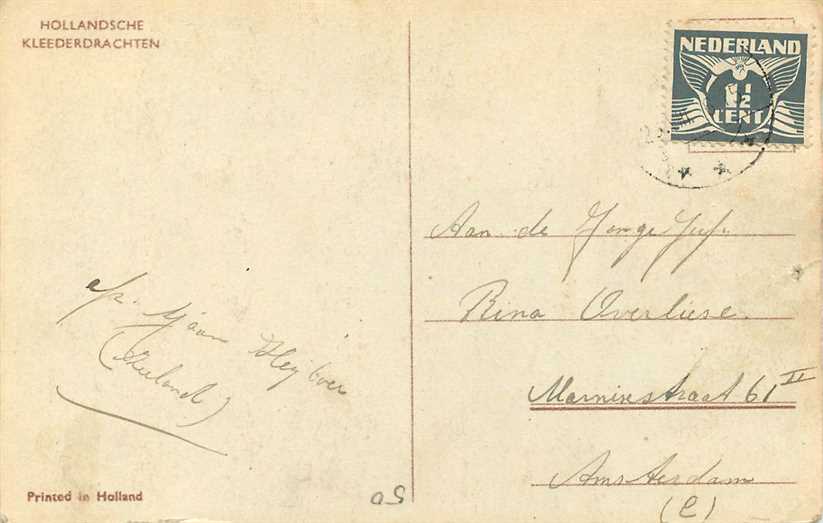 HOLLANDSCHE
KLEEDERDRACHTEN
NEDERLAND
1½
CENT
Aan de Jonge Juf.
Rina Overliese.
Marnixstraat 61 II
Amsterdam
(C)
(Zeeland)
Printed in Holland